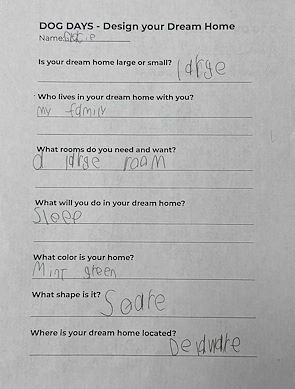 DOG DAYS - Design your Dream Home
Name:
Is your dream home large or small?
large
Who lives in your dream home with you?
my family
What rooms do you need and want?
a large room
What will you do in your dream home?
Sleep
What color is your home?
Mint green
What shape is it?
Soare
Where is your dream home located?
Delaware